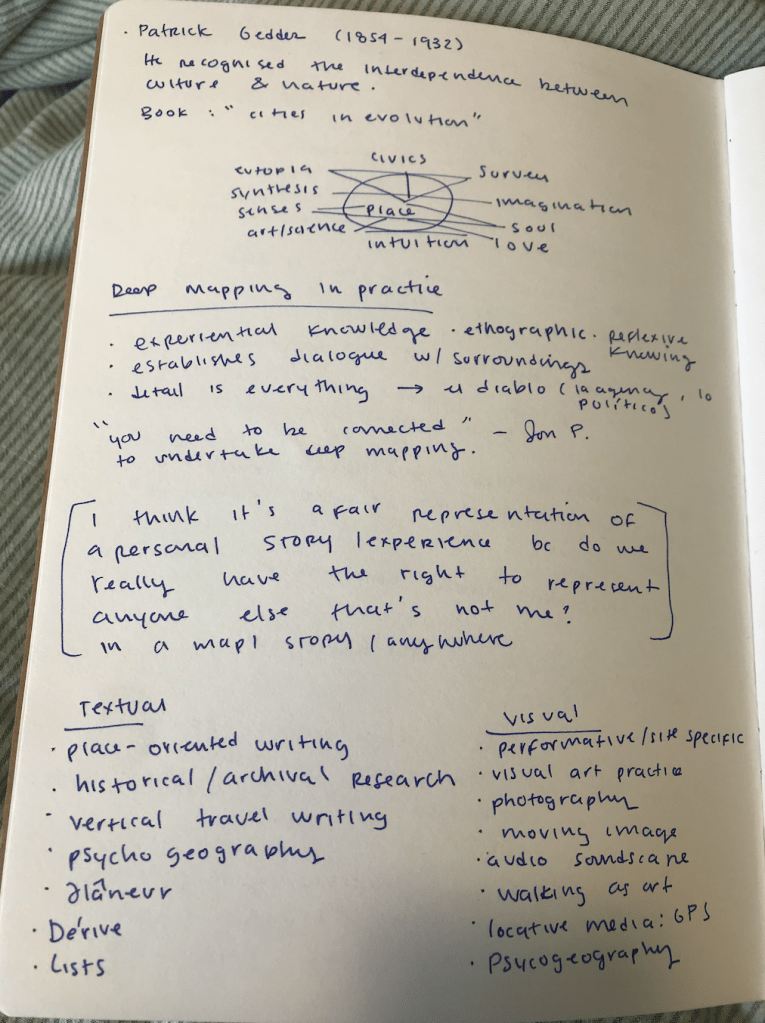 · Patrick Geddes (1854-1932)
He recognised the interdependence between
culture & nature.
Book : "cities in evolution"
civics
eutopia
survey
synthesis
imagination
senses
place
soul
art/science
intuition
love
Deep mapping in practice
· experiential knowledge · ethographic · reflexive
knowing
· establishes dialogue w/ surroundings
· detail is everything → el diablo (la agency, lo
político)
"you need to be connected" – Jon P.
to undertake deep mapping.
[I think it's a fair representation of
a personal story/experience bc do we
really have the right to represent
anyone else that's not me?
in a map/ story / anywhere]
Textual
· place-oriented writing
· historical/archival research
- vertical travel writing
· psycho geography
· flâneur
· Dérive
· Lists
visual
· performative/site specific
· visual art practice
· photography
· moving image
· audio soundscape
· walking as art
· locative media: GPS
· Psycogeography